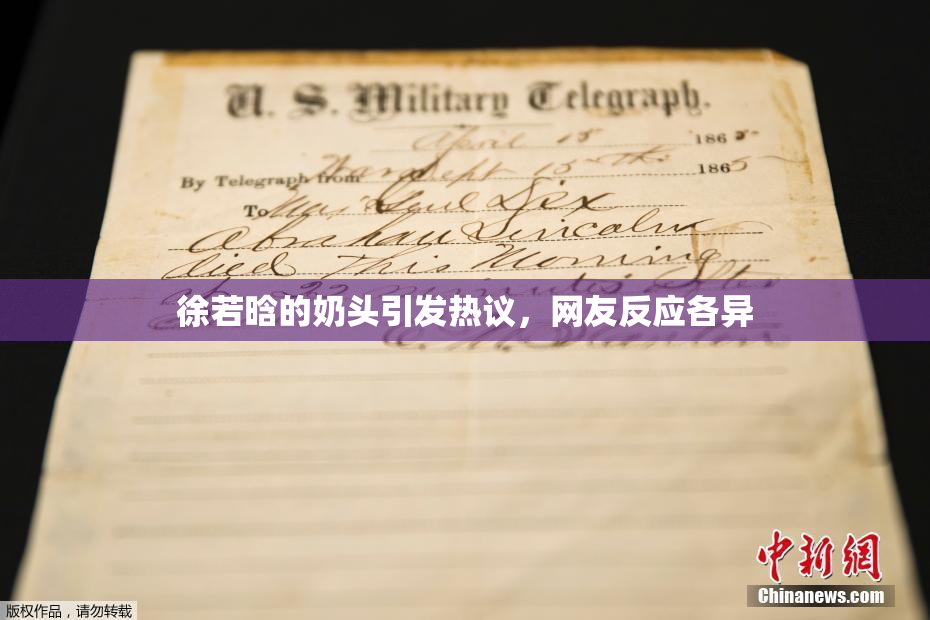 U. S. Military Telegraph.
April 15 1865
By Telegraph from War Dept 15th 1865
To Maj Genl Dix
Abraham Lincoln
died This Morning
at 22 minutes after
徐若晗的奶头引发热议，网友反应各异
中新網
Chinanews.com
版权作品，请勿转载